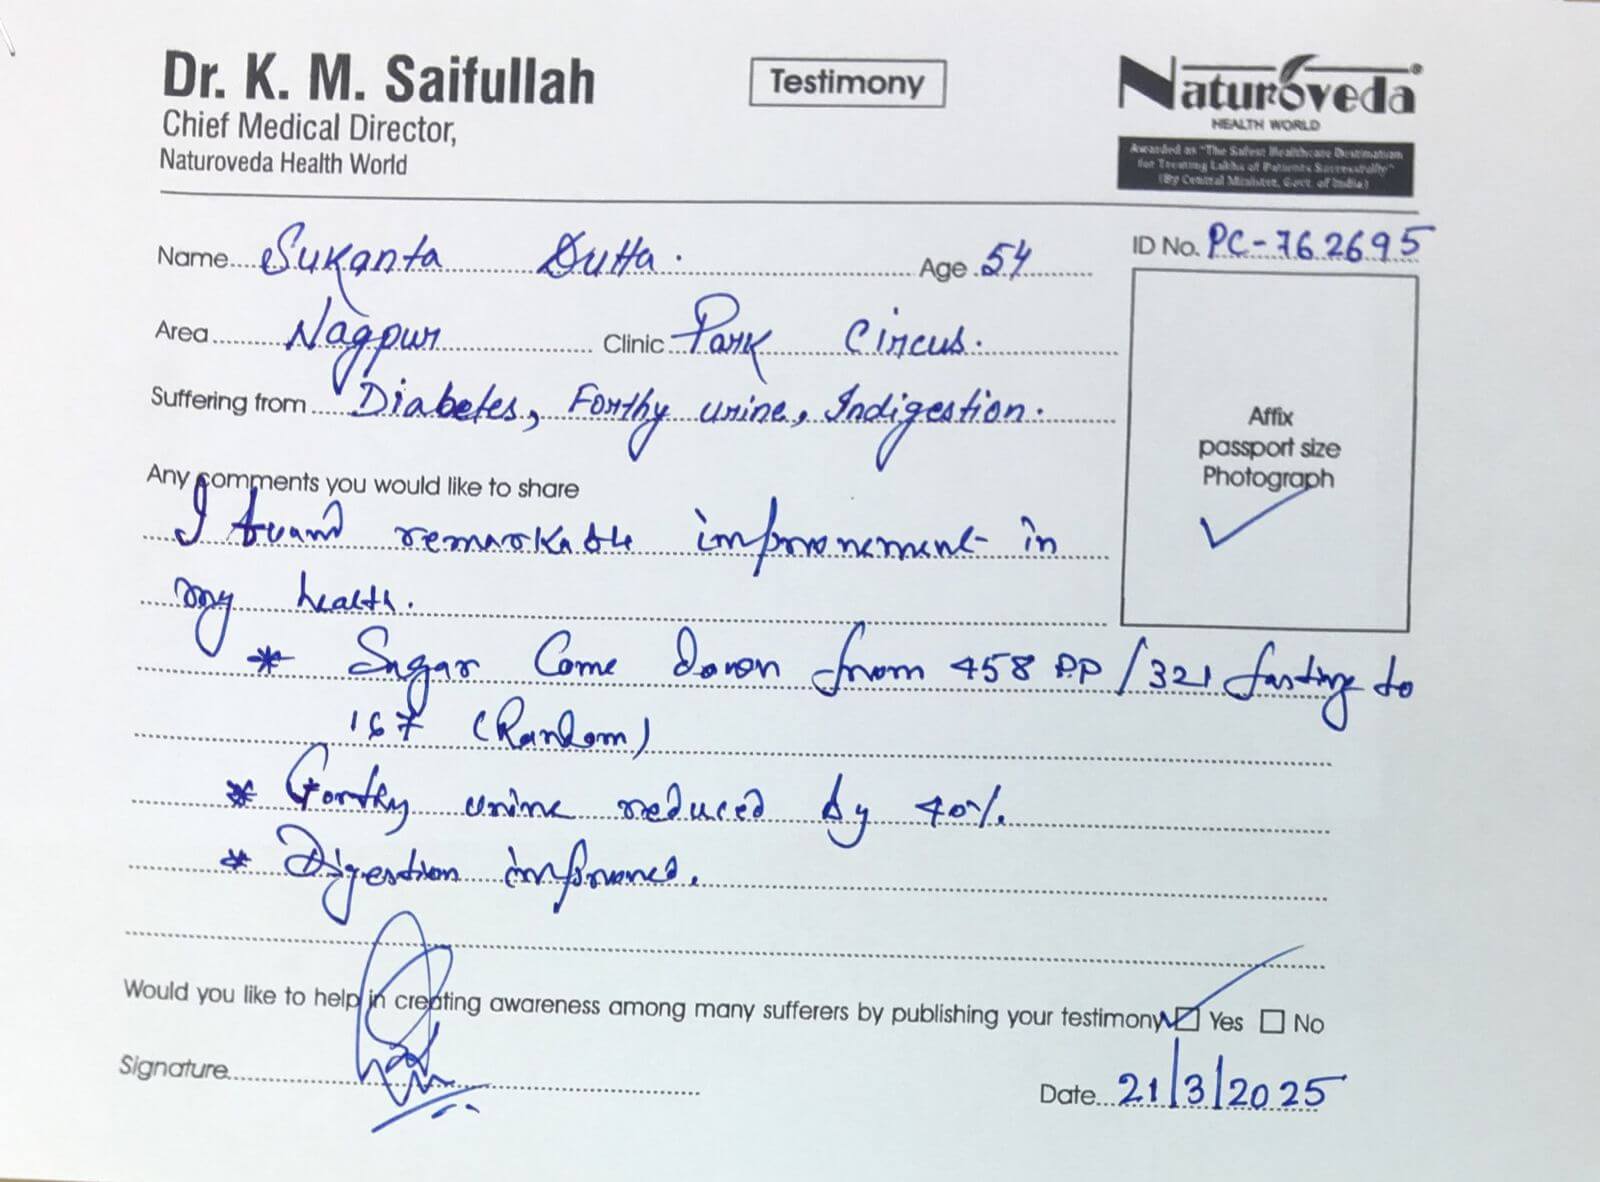 Dr. K. M. Saifullah
Chief Medical Director,
Naturoveda Health World
Testimony
Naturoveda
HEALTH WORLD
Awarded as "The Safest Healthcare Destination
for Treating Lakhs of Patients Successfully"
(By Central Minister, Govt. of India)
Name Sukanta Dutta. Age 54
ID No. PC-762695
Area Nagpur Clinic Park Circus.
Suffering from Diabetes, Forthy urine, Indigestion.
Affix
passport size
Photograph
Any comments you would like to share
I found remarkable improvement in
my health.
* Sugar Come down from 458 PP/321 fasting to
167 (Random)
* Forthy urine reduced by 40%.
* Digestion improved.
Would you like to help in creating awareness among many sufferers by publishing your testimony Yes No
Signature
Date 21/3/2025